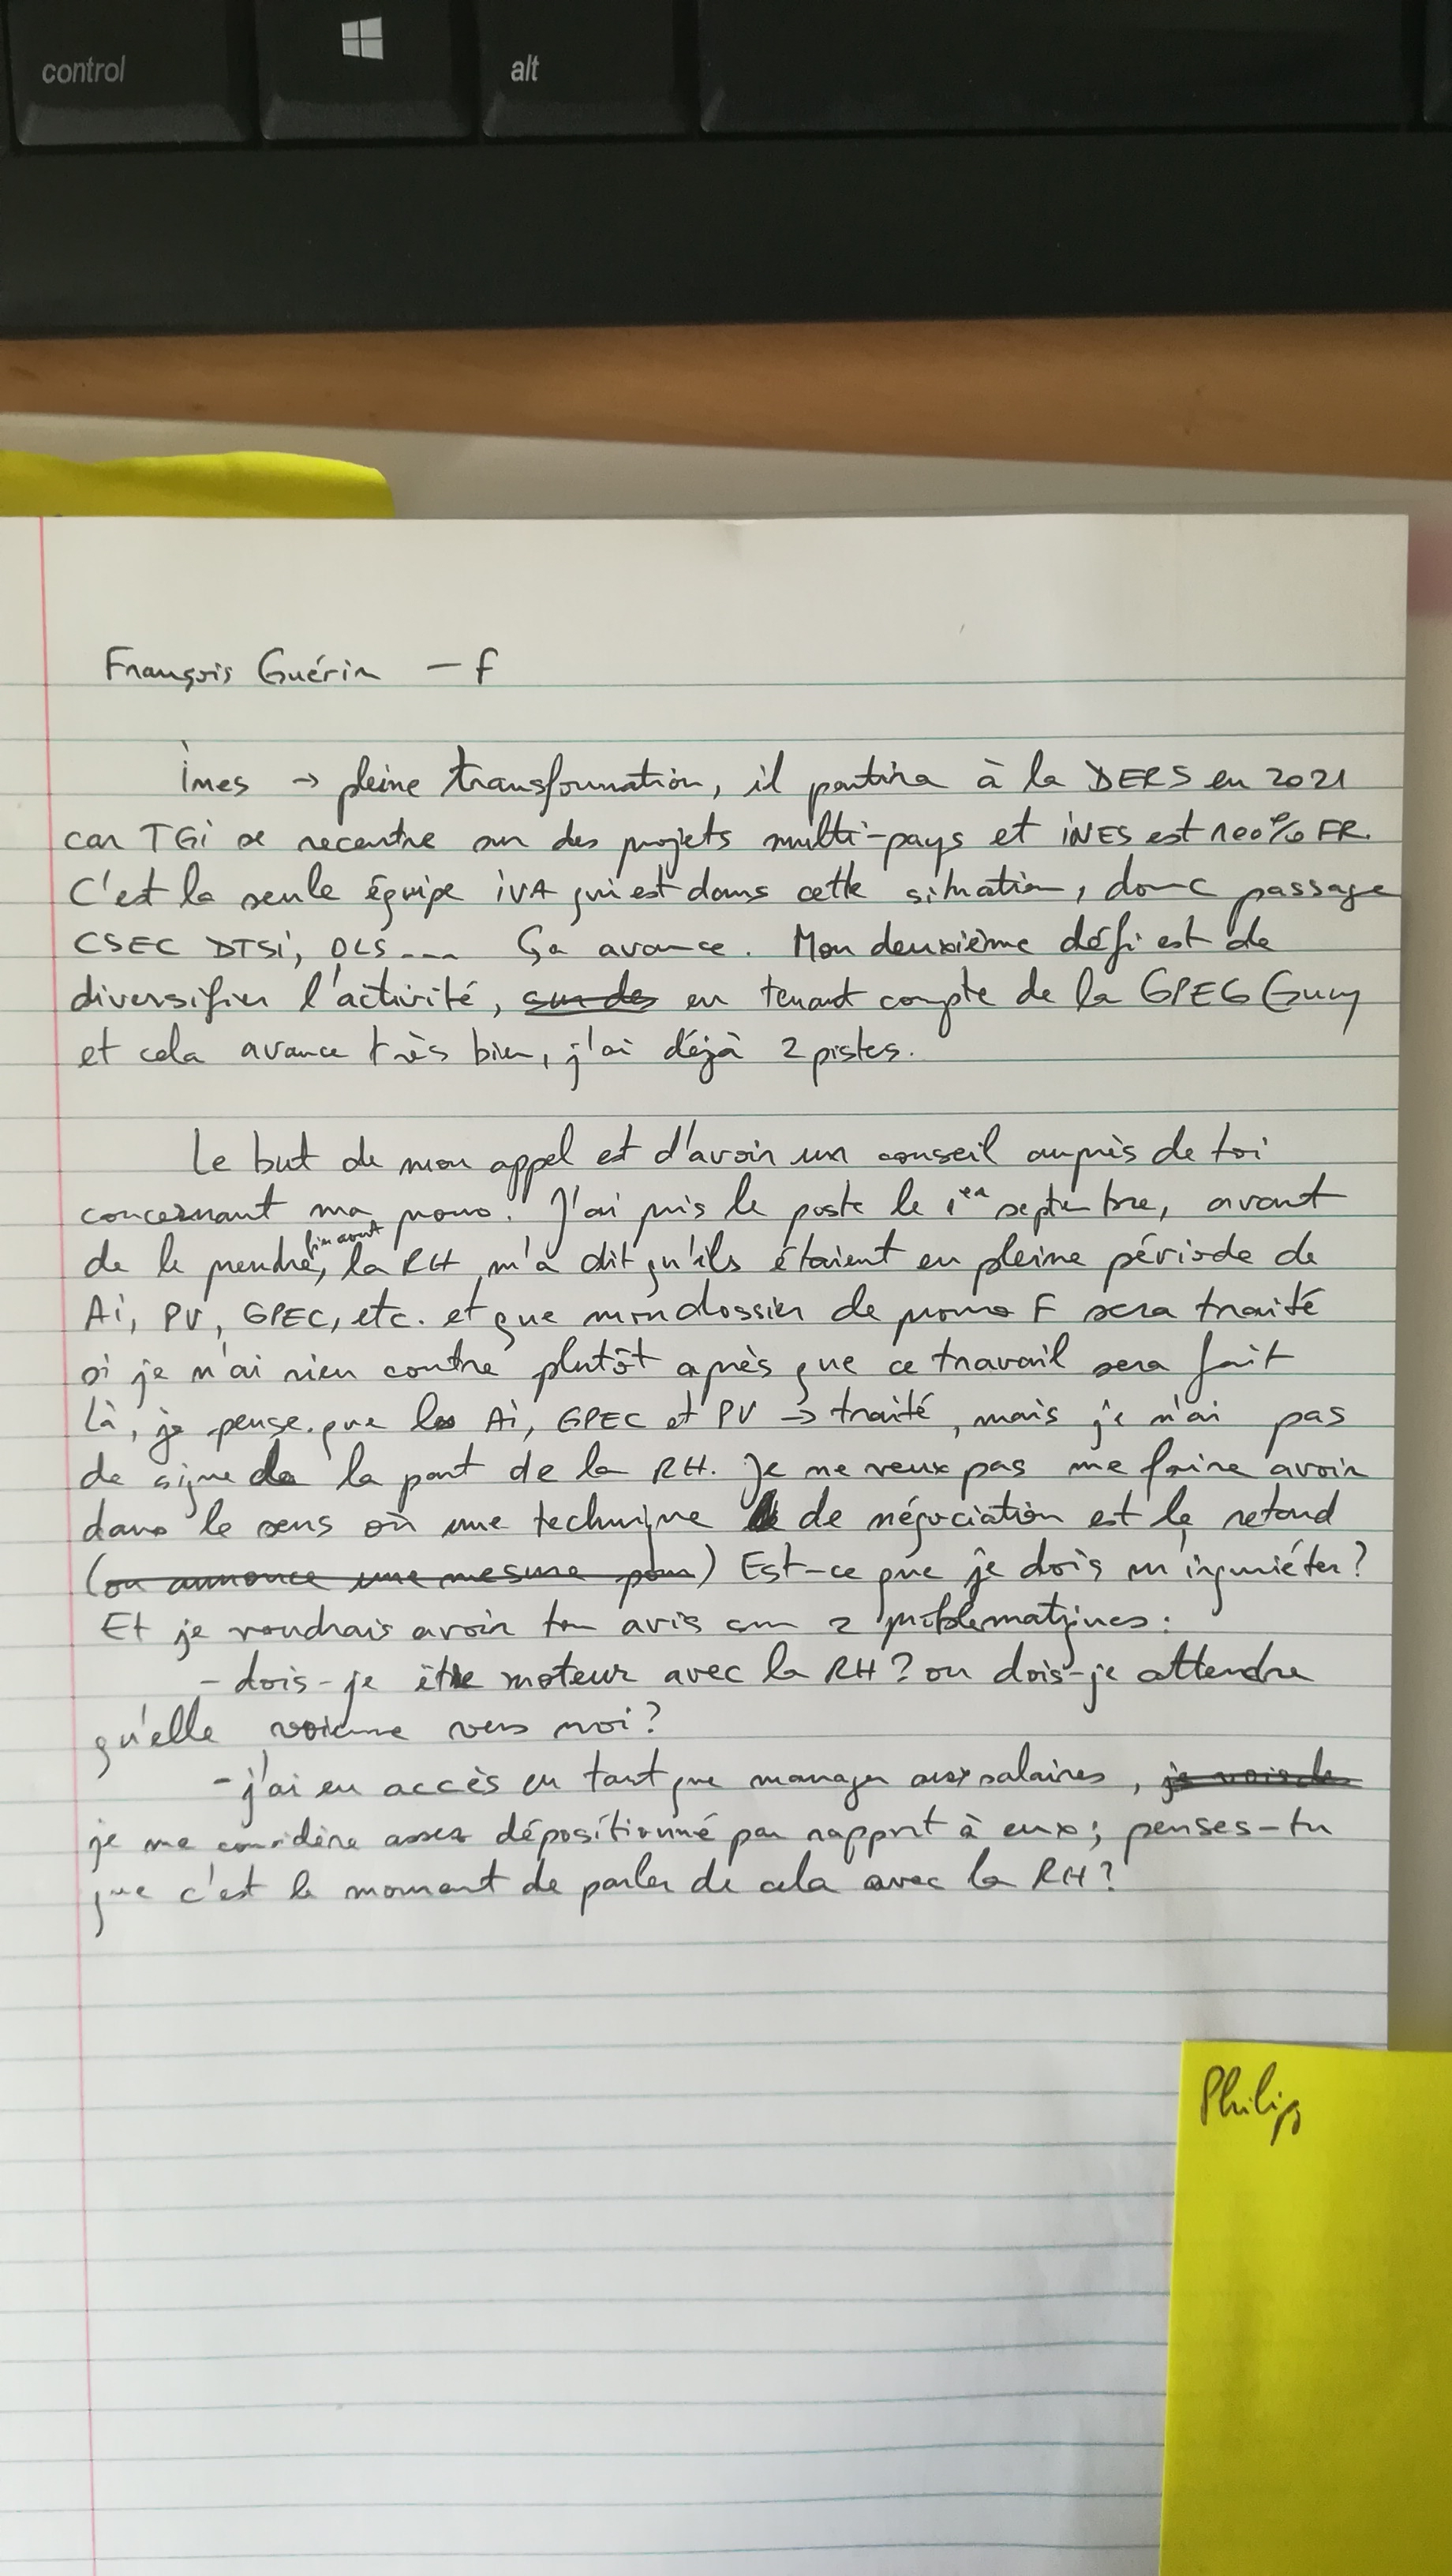 control
alt
François Guérin - F
ines → pleine transformation, il partira à la DERS en 2021
car TGi se recentre sur des projets multi-pays et iNES est 100% FR.
C'est la seule équipe iVA qui est dans cette situation, donc passage
CSEC DTSi, OLS... Ça avance. Mon deuxième défi est de
diversifier l'activité, sur des en tenant compte de la GPEG Guy
et cela avance très bien, j'ai déjà 2 pistes.
Le but de mon appel est d'avoir un conseil auprès de toi
concernant ma promo. J'ai pris le poste le 1er septembre, avant
de le prendre, fin aout la RH m'a dit qu'ils étaient en pleine période de
Ai, PV, GPEC, etc. et que mon dossier de promo F sera traité
si je n'ai rien contre plutôt après que ce travail sera fait
Là, je pense que les Ai, GPEC et PV → traité, mais je n'ai pas
de signe de la part de la RH. Je ne veux pas me faire avoir
dans le sens où une technique de négociation est le retard
(on annonce une mesure pour) Est-ce que je dois m'inquiéter?
Et je voudrais avoir ton avis sur 2 problématiques:
- dois-je être moteur avec la RH? ou dois-je attendre
qu'elle vienne vers moi?
- j'ai eu accès en tant que manager aux salaires, je vois de
je me considère assez dépositionné par rapport à eux; penses-tu
que c'est le moment de parler de cela avec la RH?
Philip